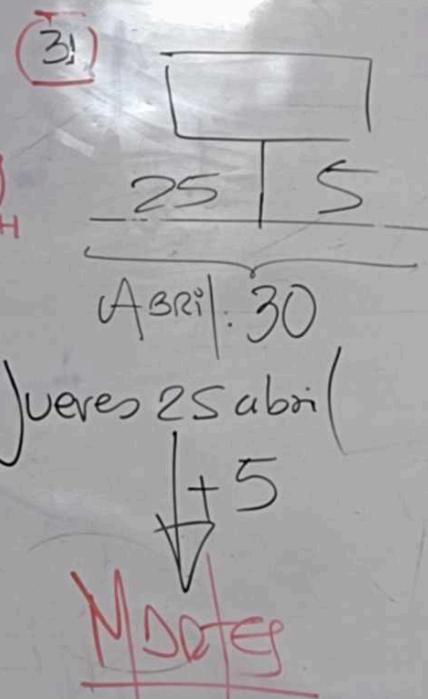 31
25 5
Abril: 30
Jueves 25 abril
+5
Martes